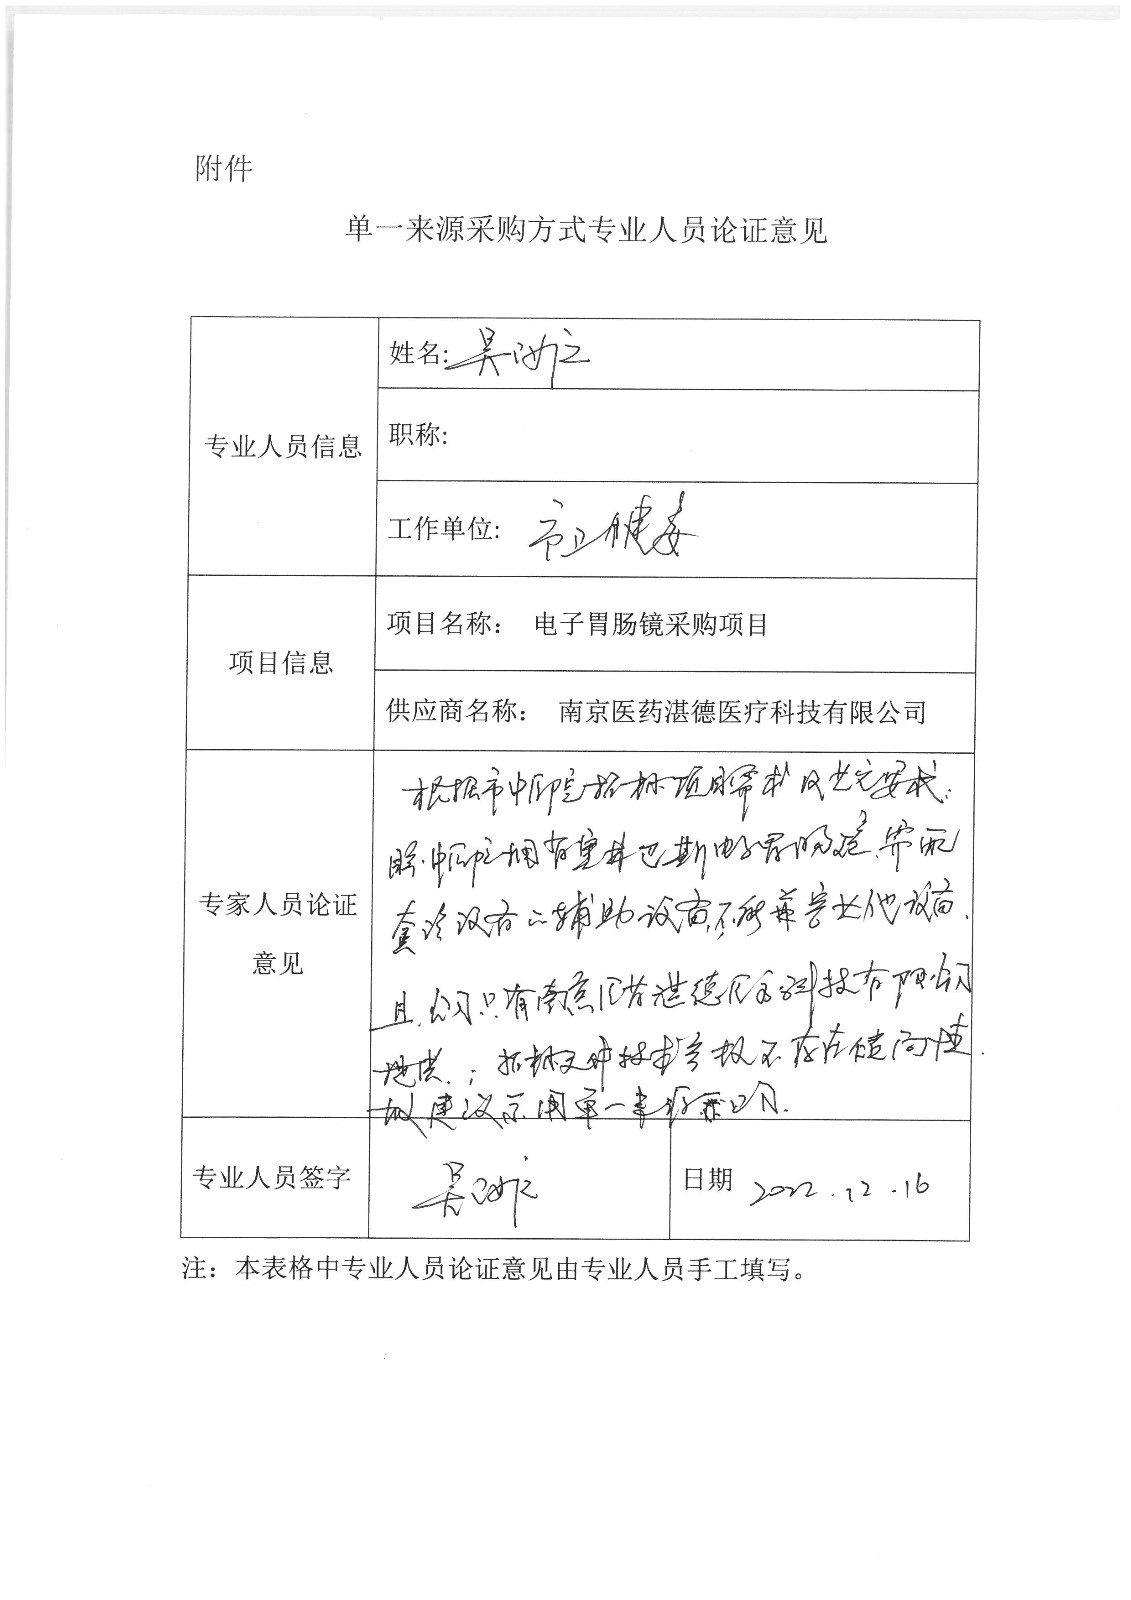 附件
单一来源采购方式专业人员论证意见
专业人员信息
姓名: 吴
职称:
工作单位: 市卫健委
项目信息
项目名称： 电子胃肠镜采购项目
供应商名称： 南京医药湛德医疗科技有限公司
专家人员论证
意见
根据市中医院招标项目需求及其它要求:
中医院拥有 电子胃肠镜,需配
套 设备 辅助设备,不能兼容其他设备,
且 公司只有南京医药湛德医疗科技有限公司
; 招标文件技术参数不存在倾向性.
故建议采用单一来源采购.
专业人员签字
吴
日期 2022.12.16
注：本表格中专业人员论证意见由专业人员手工填写。